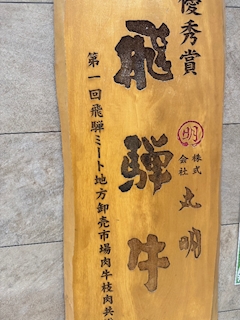 優秀賞
飛騨牛
明
株式会社 丸明
第一回飛騨ミート地方卸売市場肉牛枝肉共